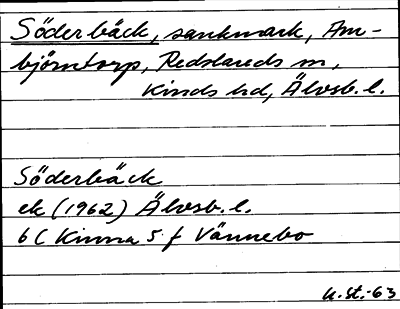 Söderbäck, sankmark, Am-
björntorp, Redslareds sn,
Kinds hd, Älvsb. l.
Söderbäck
ek (1962) Älvsb. l.
6 C Kinna 5 f Vännebo
K. St.-63